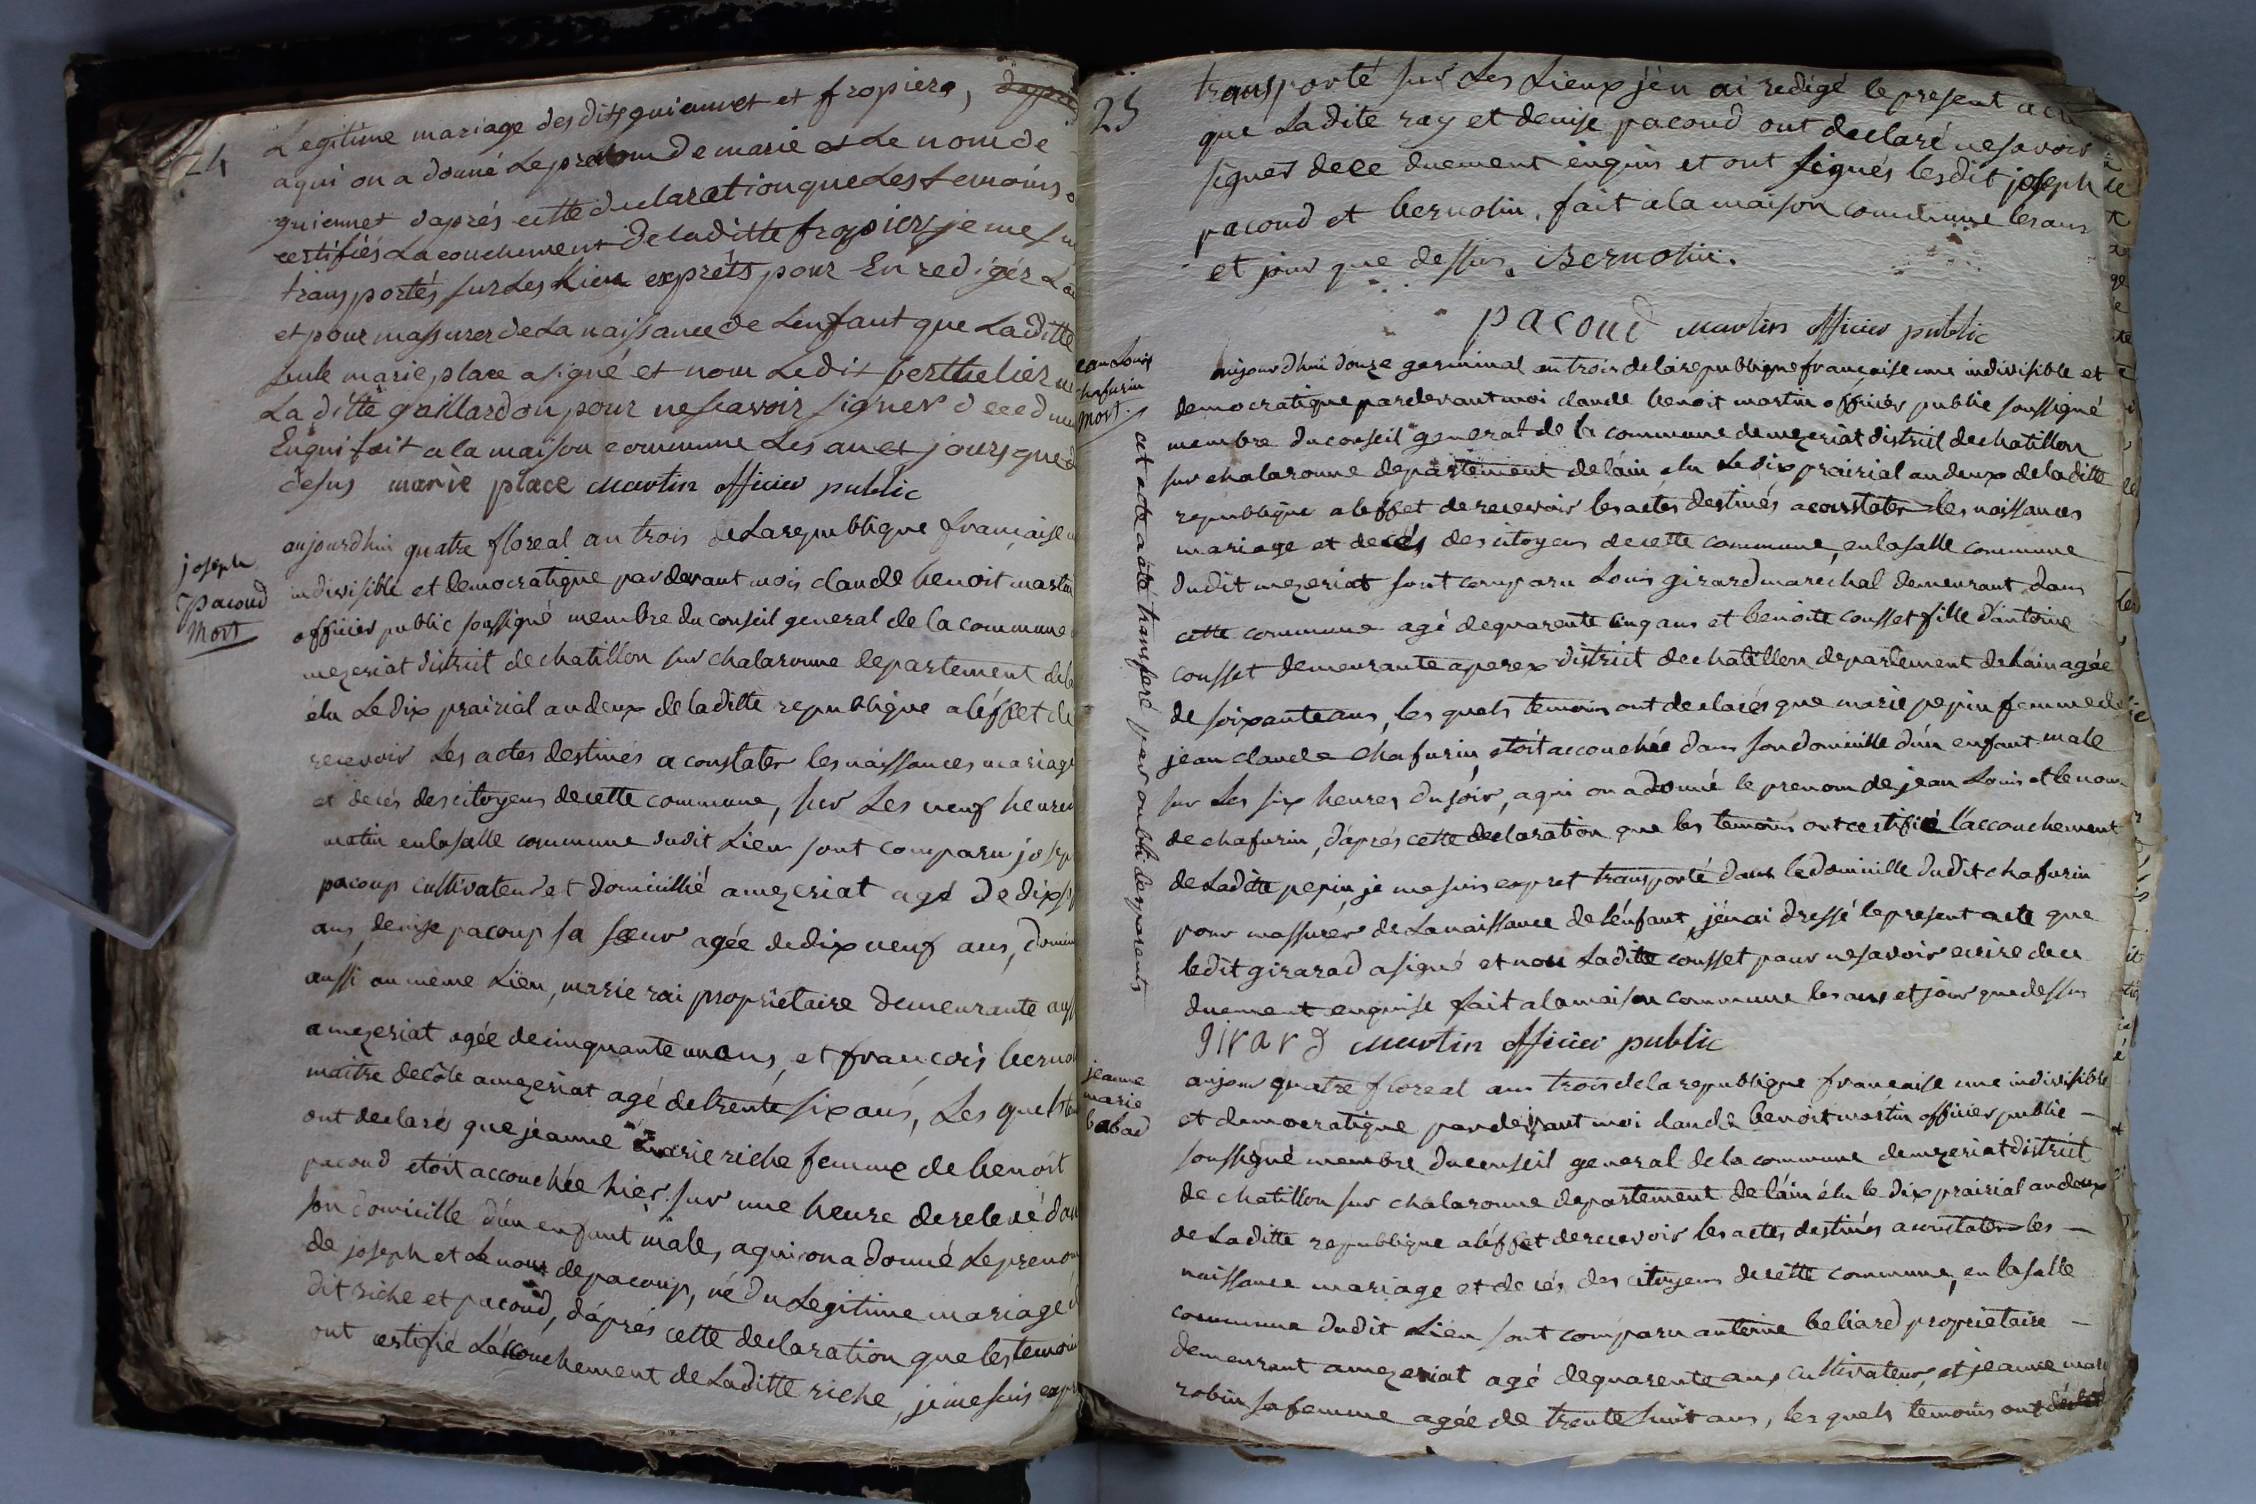 24
Legitime mariage des dits guiennet et fropiers,
a qui on a donné Le prenom de marie et Le nom de
guiennet d'aprés cette declaration que Les temoins
certifiés Lacouchement de laditte fropier je me
transportés sur Les Lieu exprêts pour En redigér
et pour massurer de La naissance de Lenfant que Laditte
seule marie, place a signé et nom Le dit berthelier
La ditte gaillardon pour ne scavoir signer de ce
Enqui fait a la maison commune Les an et jours que
desus marie place Martin officier public
joseph
pacoud
Mort
aujourdhui quatre floreal an trois de La republique française
indivisible et democratique par devant mois claude benoit martin
officier public soussigné membre du conseil general de la commune
mezeriat district de chatillon sur chalaronne departement de
élu Le dix prairial an deux de laditte republique a léffet de
recevoir Les actes destinés a constater les naissances mariage
et décés des citoyens de cette commune, sur Les neuf heures
matin en la salle commune dudit Lieu sont comparu joseph
pacoup cultivateur et domicillié a mezeriat agé de dix
ans, denise pacoup sa sœur agée de dix neuf ans,
aussi au même Lieu, marie rai propriétaire demeurante
a mezeriat agée de cinquante un ans, et françois
maitre decôle a mezeriat agé de trente six ans, Les quels
ont declaré que jéanne marie riche femme de benoit
pacoud etoit accouchée hièr sur une heure de relevé
son domicille d'un enfant male, a qui on a donné Le prenom
de joseph et Le nom de pacoup, né du Legitime mariage
dit riche et pacoud, d'aprés cette declaration que les temoin
ont certifié Láccouchement de Laditte riche, je me suis
25
transporté sur Les Lieux j'en ai redigé le present
que Ladite ray et denise pacoud ont declaré ne savoir
signer de ce duement enquis et ont signés lesdit joseph
pacoud et bernolin, fait a la maison commune les ans
et jour que dessus. Bernolin.
pacoud Martin officier public
jean Louis
chafurin
Mort.
cet acte a été transferé par oubli des parents
aujourdhui douze germinal an trois de la republique française une indivisible et
democratique par devant moi claude benoit martin officiér public soussigné
membre du conseil general de la commune de mezeriat district de chatillon
sur chalaronne departement de láin élu Le dix prairial an deux de laditte
republique a léffet de recevoir les actes destinés a constater les naissances
mariage et decés des citoyens de cette commune, en la salle commune
dudit mezeriat sont comparu Louis girard maréchal demeurant dans
cette commune agé de quarente cinq ans et benoite cousset fille d'antoine
cousset demeurante a perex district de chatillon departement de Lain agée
de soixante ans, les quels temoins ont declarés que marie pepin femme de
jean claude chafurin, etoit accouchée dans son domicille d'un enfant male
sur Les six heures du soir, a qui on a donné le prenom de jean Louis et le nom
de chafurin, d'aprés cette declaration que les temoins ont certifié l'accouchement
de Ladite pepin, je me suis expret transporté dans le domicille dudit chafurin
pour massurer de La naissance de lénfant, j'en ai dressé le present acte que
le dit girarad a signé et non Laditte cousset pour ne savoir ecrire de ce
duement enquise fait a la maison commune les ans et jour que dessus
girard Martin officier public
jeanne
marie
babad
aujour quatre floreal an trois de la republique française une indivisible
et democratique par devant moi claude benoit martin officier public –
soussigné membre du conseil general de la commune de mezeriat district
de chatillon sur chalaronne departement de láin élu le dix prairial an deux
de Laditte republique a léffet de recevoir les actes destinés a constater les –
naissance mariage et decés des citoyens de cette commune, en la salle
commune dudit Lieu sont comparu antoine beliard propriétaire –
demeurant a mezeriat agé de quarente ans cultivateur, et jeanne marie
robin sa femme agée de trente huit ans, les quels temoins ont